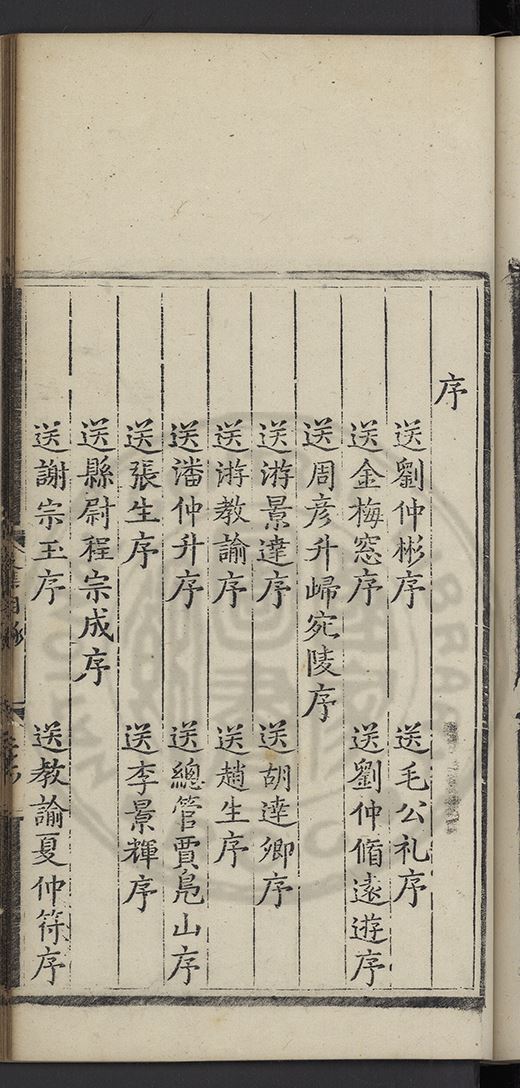 序
送劉仲彬序　送毛公礼序
送金梅窓序　送劉仲脩遠遊序
送周彥升歸宛陵序
送游景達序　送胡達卿序
送游教諭序　送趙生序
送潘仲升序　送總管賈鳧山序
送張生序　送李景輝序
送縣尉程宗成序
送謝宗玉序　送教諭夏仲符序